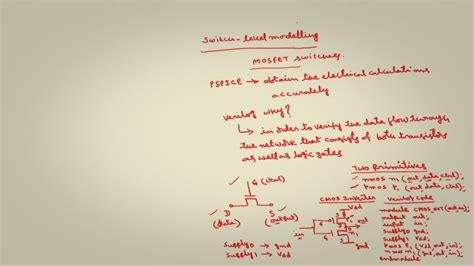 Switch-level modelling
MOSFET switches.
PSPICE → obtain the electrical calculations
accurately
verilog why?
in order to verify the data flow through
the network that consists of both transistors
as well as logic gates
Two Primitives
✓ nmos n1 (out, data, ctrl);
✓ pmos p1 (out, data, ctrl);
G (ctrl)
D S
(data) (output)
Supply0 → gnd
Supply1 → Vdd
CMOS Inverter
Vdd
in
G
G
S
D
gnd
Verilog Code
output out;
input in;
supply0 gnd;
supply1 Vdd;
endmodule